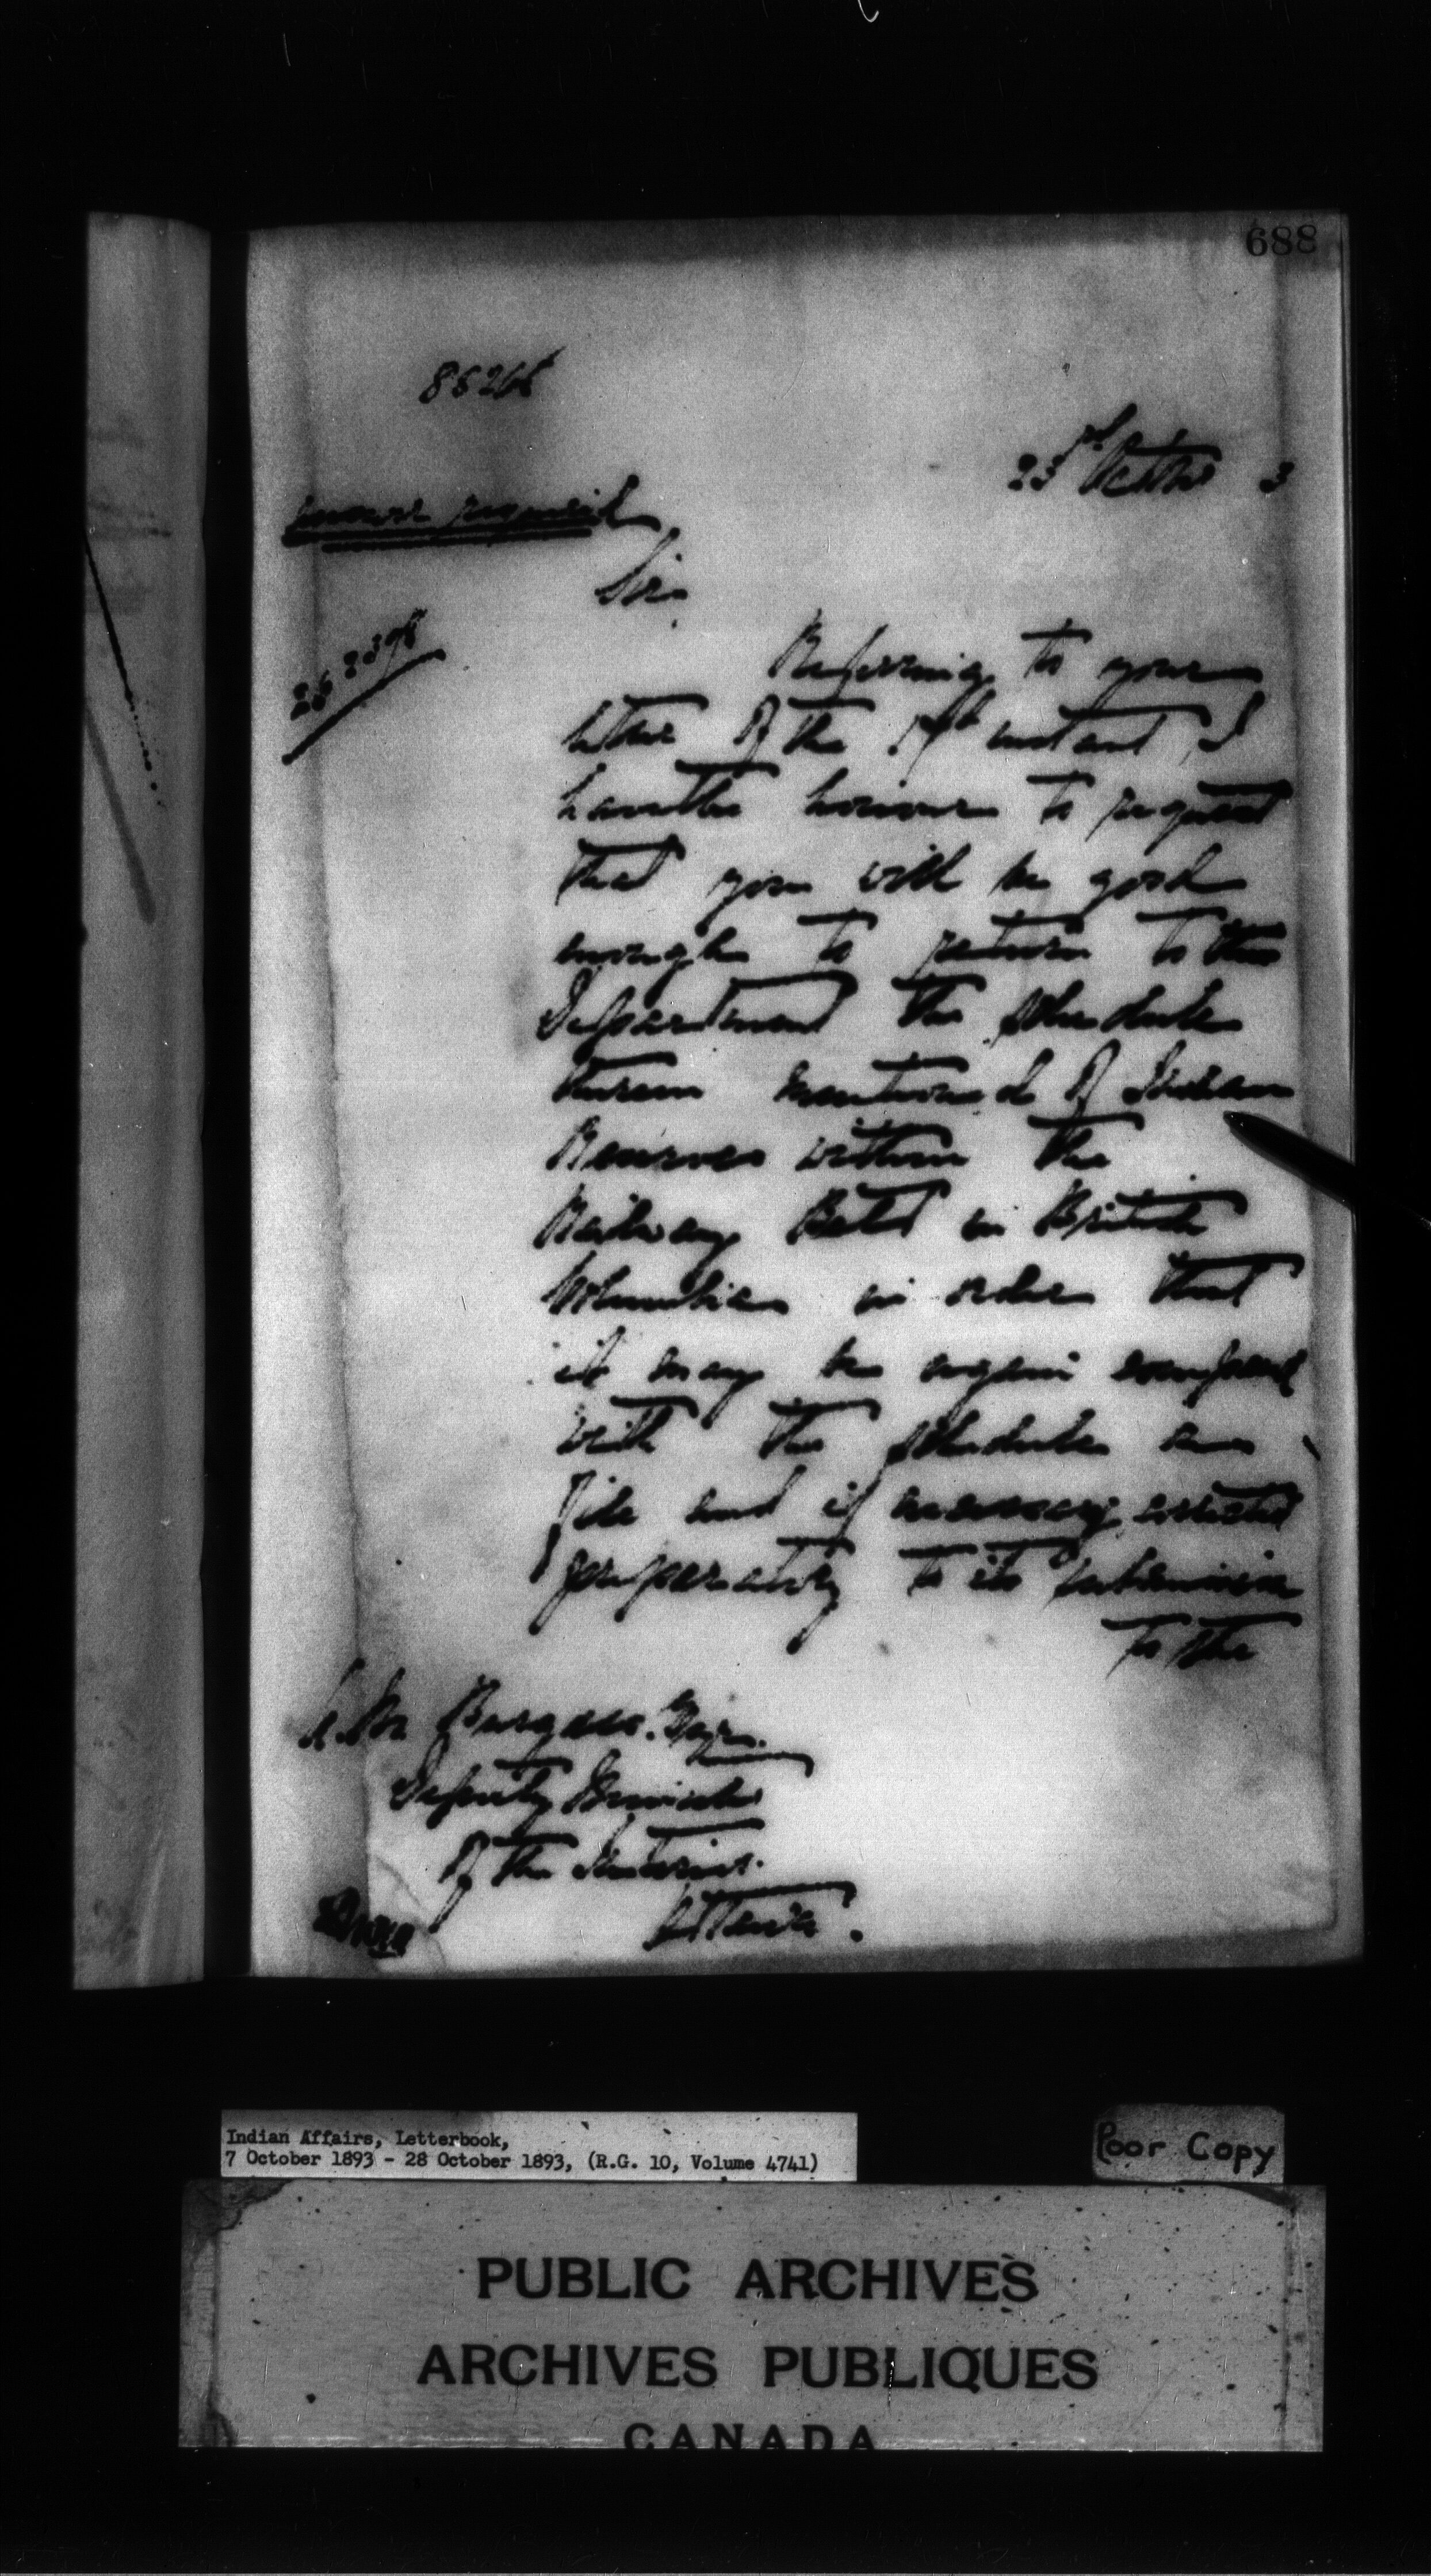 688
23rd October 3
Answer required
Sir,
Referring to your
letter of the instant I
have the honour to request
that you will be good
enough to return to this
Department the schedule
therein mentioned of Indian
Reserves within the
Railway Belt in British
Columbia in order that
it may be again compared
with the schedule on
file and if necessary corrected
preparatory to its submission
to the
A.M. Burgess. Esqr.
Deputy Minister
of the Interior.
Ottawa.
Indian Affairs, Letterbook,
7 October 1893 - 28 October 1893, (R.G. 10, Volume 4741)
Poor Copy
PUBLIC ARCHIVES
ARCHIVES PUBLIQUES
CANADA